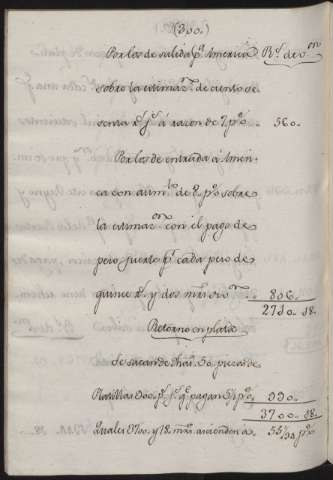 (300.)
Por los de salida pª. America Rˢ. de vᵒⁿ
sobre la estimazⁿ. de ciento se-
senta Rˢ. fˢ. á razon de 7 pº. 560..
Por los de entrada á Amer-
ica con aumᵗᵒ. de 8 pº. sobre
la estimazᵒⁿ. con el pago de
peso fuerte pʳ. cada peso de
quince Rˢ. y dos mrs.. 806..
2780..18..
Retorno en plata
Se sacan de
Platillas 300 pˢ. fˢ. qᵉ. pagan 5½ pº. 330..
3700..18..
Quales 3700. y 18 mrs. ascienden á.. pº.